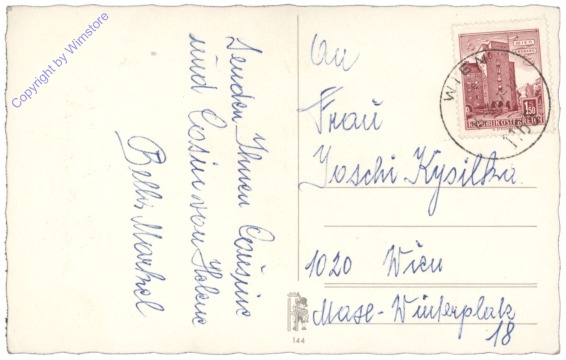 Copyright by Wimstore
Senden Ihnen Cousine
und Cosin von Helene
Bella Markel
An
Frau
Joschi Kysilka
1020 Wien
Max-Winterplatz
18
WIEN
1,50
REPUBLIK ÖSTERREICH
WIEN
110
144